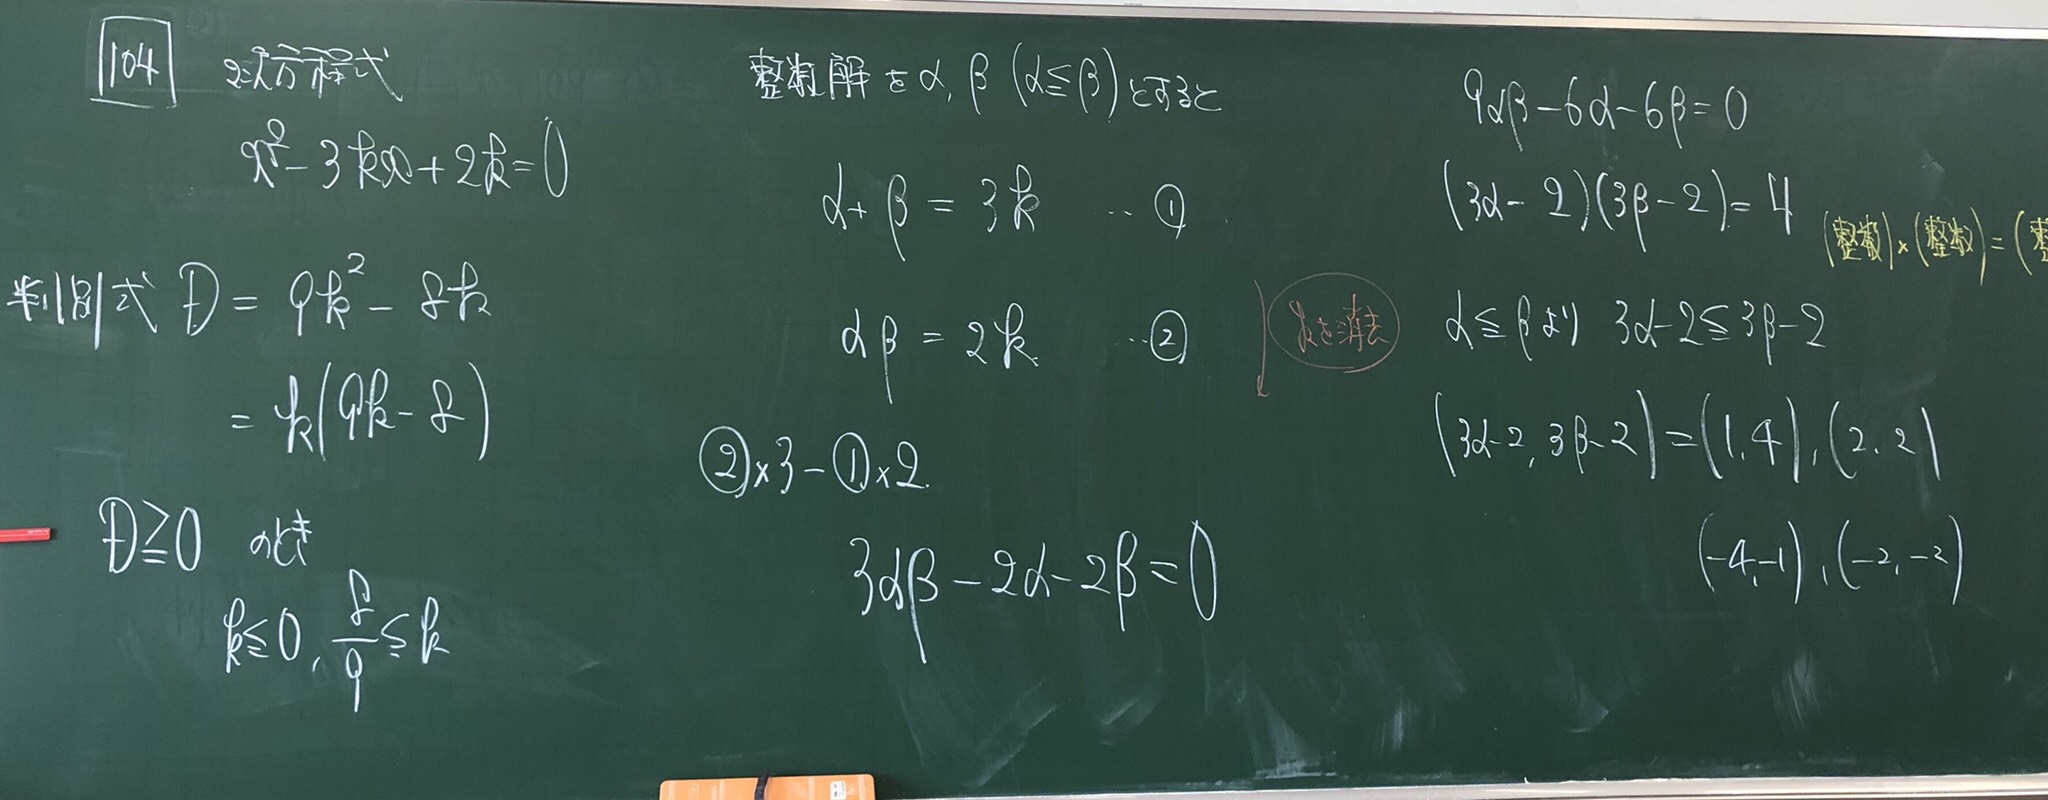 104 2次方程式
x²-3kx+2k=0
判別式 D = 9k²-8k
= k(9k-8)
D≧0 のとき
k≦0, 8/9≦k
整数解をα, β (α≦β)とすると
α+β=3k …①
αβ=2k …②
kを消去
②×3-①×2
3αβ-2α-2β=0
9αβ-6α-6β=0
(3α-2)(3β-2)=4
(整数)×(整数)=(整
α≦βより 3α-2≦3β-2
(3α-2, 3β-2)=(1, 4), (2, 2)
(-4, -1), (-2, -2)